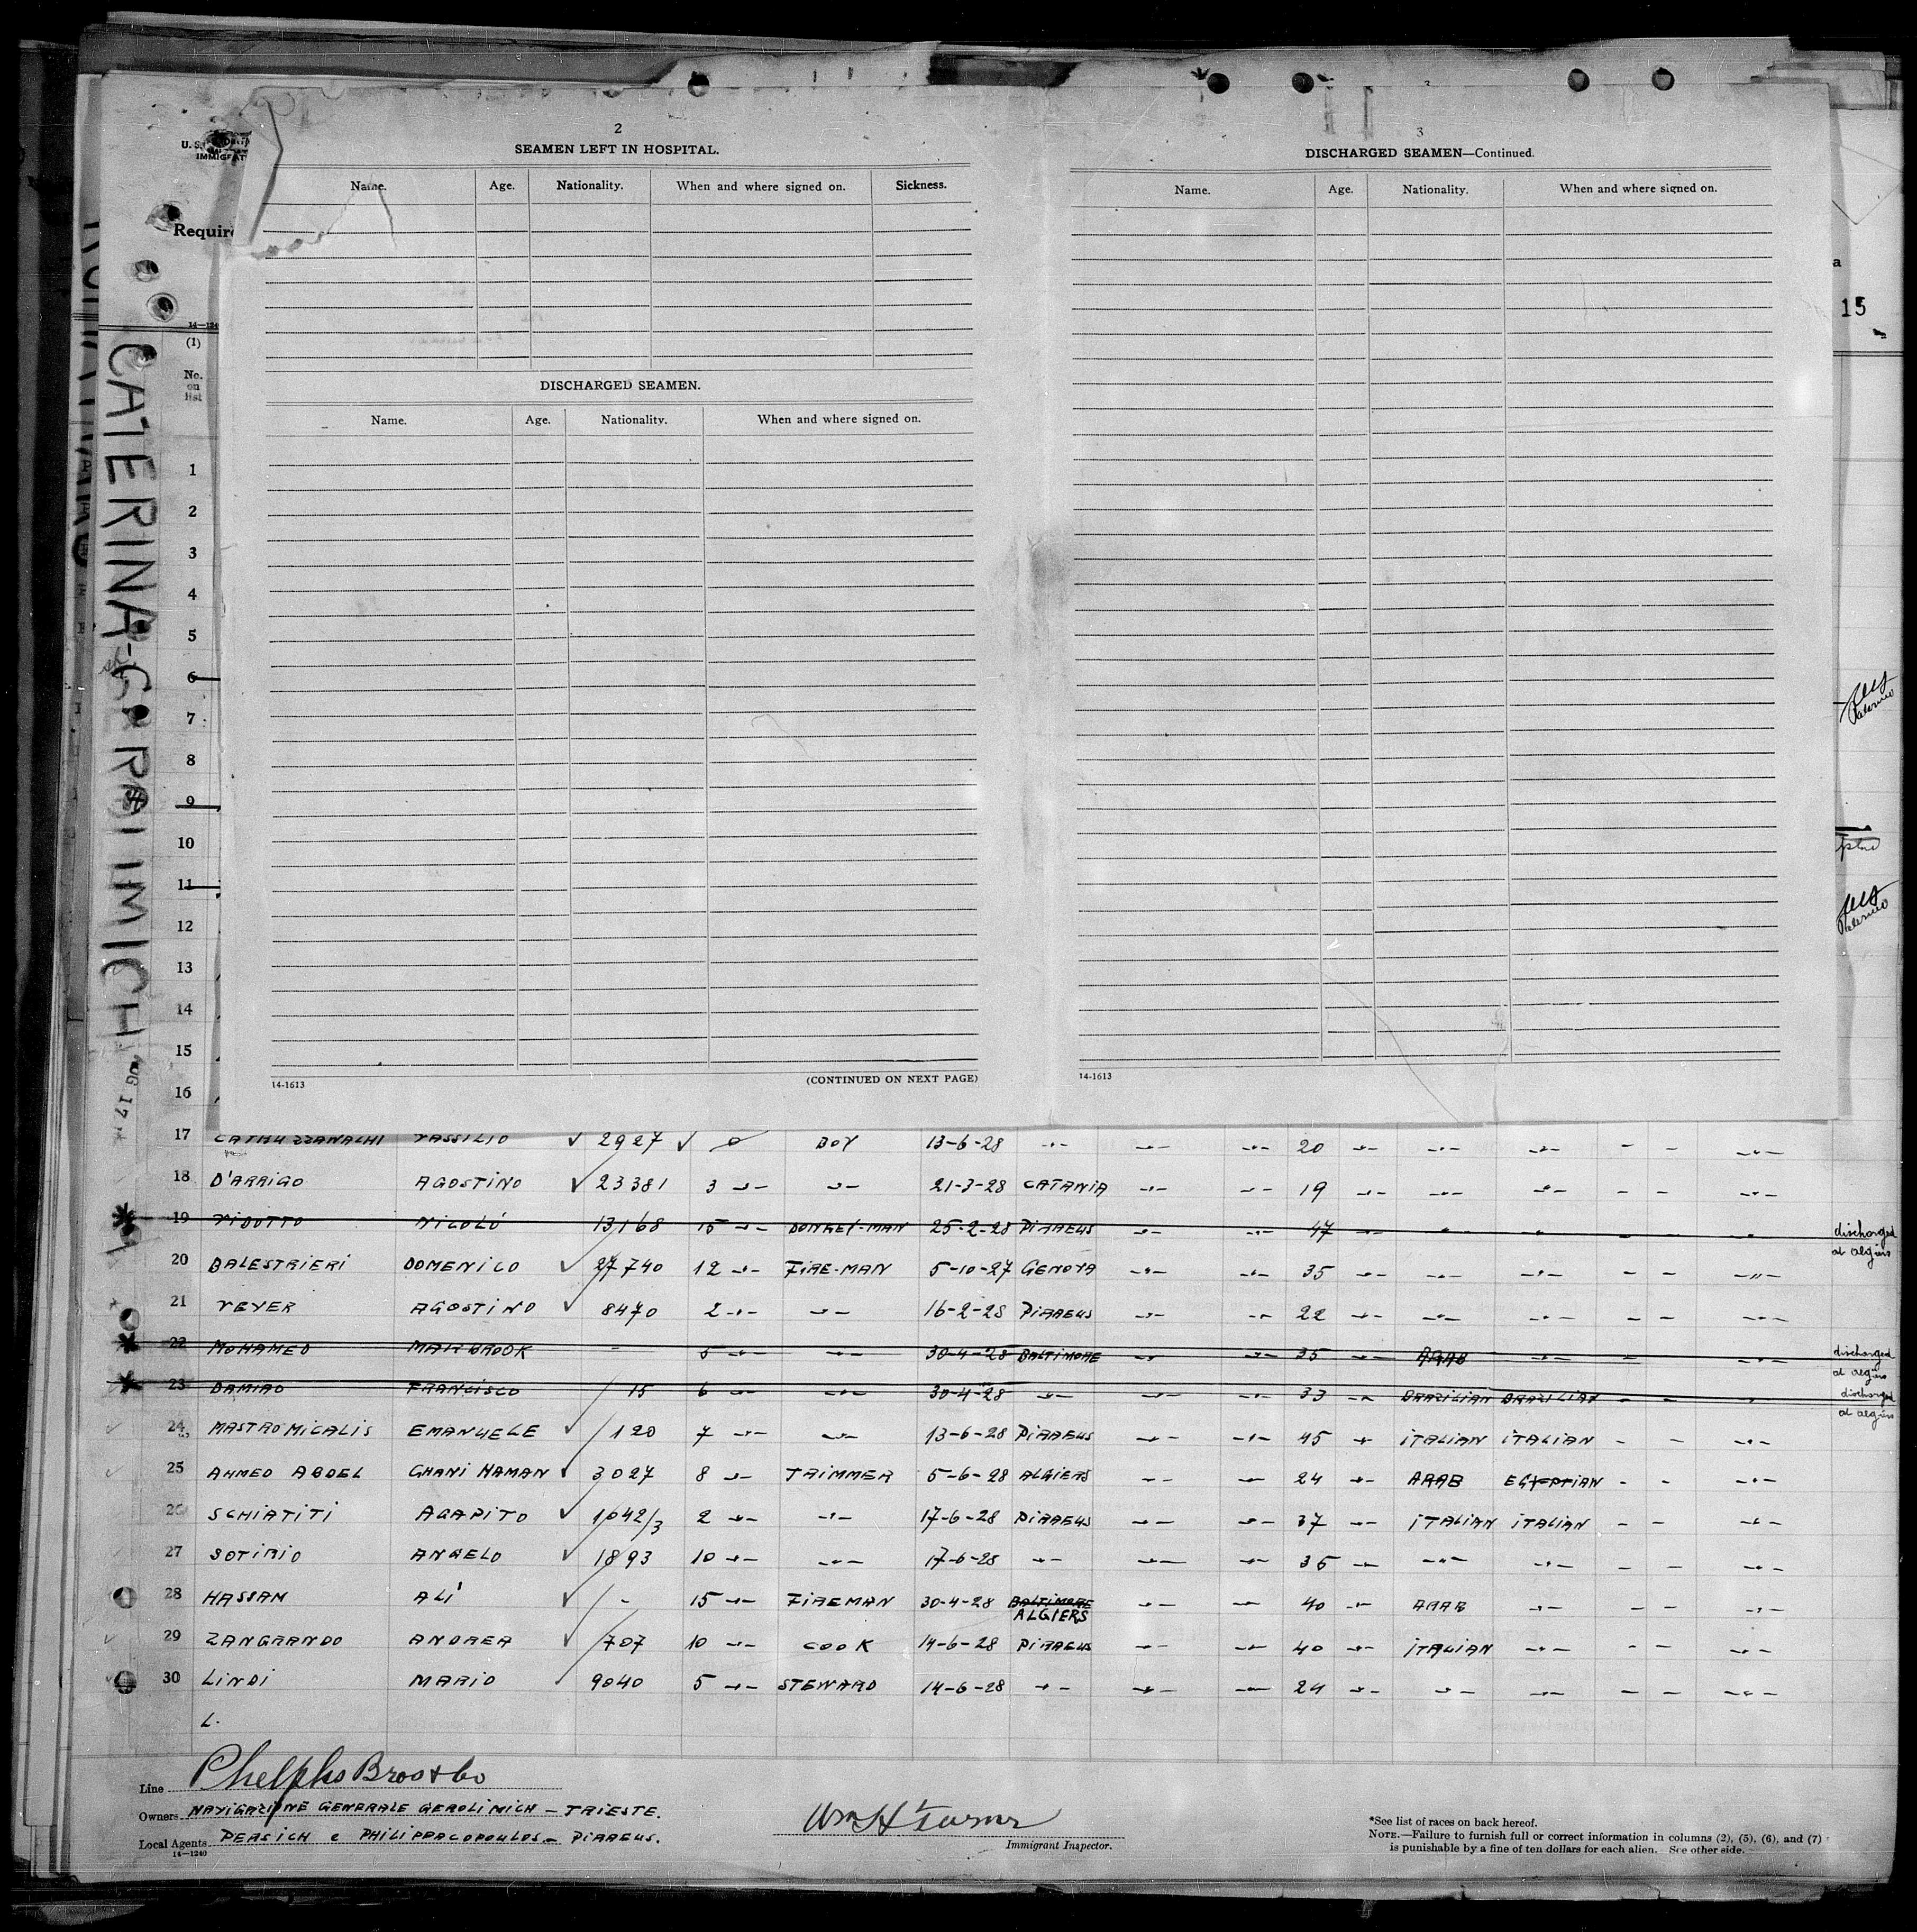 2
SEAMEN LEFT IN HOSPITAL.
Name. Age. Nationality. When and where signed on. Sickness.
DISCHARGED SEAMEN.
Name. Age. Nationality. When and where signed on.
14-1613 (CONTINUED ON NEXT PAGE)
3
DISCHARGED SEAMEN—Continued.
Name. Age. Nationality. When and where signed on.
14-1613
U. S.
IMMIGRAT
Requir
a
15
14—124
(1)
No.
on
list
CATERINA
IMICH
1
2
3
4
5
6
7
8
9
10
11
12
13
14
15
16
Palermo
Palermo
17 VASSILIO 2927 BOY 13-6-28 -"- -"- -"- 20 -"- -"- -"- - - -"-
18 D'ARRIGO AGOSTINO 23381 3 -"- -"- 21-3-28 CATANIA -"- -"- 19 -"- -"- -"- - - -"-
19 VIDOTTO NICOLÓ 13168 15 -"- DONKEY-MAN 25-2-28 PIRAEUS -"- -"- 47 -"- -"- - - -"- discharged at algiers
20 BALESTRIERI DOMENICO 27740 12 -"- FIRE-MAN 5-10-27 GENOVA -"- -"- 35 -"- -"- -"- - - -"-
21 VEVER AGOSTINO 8470 2 -"- -"- 16-2-28 PIRAEUS -"- -"- 22 -"- -"- -"- - - -"-
22 MOHAMED MABROOK - 5 -"- -"- 30-4-28 BALTIMORE -"- -"- 35 -"- ARAB -"- - -"- discharged at algiers
23 DAMIAO FRANCISCO 15 6 -"- -"- 30-4-28 -"- -"- -"- 33 -"- BRAZILIAN BRAZILIAN - - -"- discharged at algiers
24 MASTROMICALIS EMANUELE 120 7 -"- -"- 13-6-28 PIRAEUS -"- -"- 45 -"- ITALIAN ITALIAN - - -"-
25 AHMED ABDEL GHANI HAMAN 3027 8 -"- TRIMMER 5-6-28 ALGIERS -"- -"- 24 -"- ARAB EGYPTIAN - - -"-
26 SCHIATITI AGAPITO 1042/3 2 -"- -"- 17-6-28 PIRAEUS -"- -"- 37 -"- ITALIAN ITALIAN - - -"-
27 SOTIRIO ANGELO 1893 10 -"- -"- 17-6-28 -"- -"- -"- 35 -"- -"- -"- - - -"-
28 HASSAN ALÍ - 15 -"- FIREMAN 30-4-28 BALTIMORE -"- -"- 40 -"- ARAB -"- - - -"-
ALGIERS
29 ZANGRANDO ANDREA 707 10 -"- COOK 14-6-28 PIRAEUS -"- -"- 40 -"- ITALIAN -"- - - -"-
30 LINDI MARIO 9040 5 -"- STEWARD 14-6-28 -"- -"- -"- 24 -"- -"- -"- - - -"-
L.
Line Phelphs Bros & Co
Owners NAVIGAZIONE GENERALE GEROLIMICH - TRIESTE.
Local Agents PERSICH e PHILIPPACOPOULOS - PIRAEUS.
14—1240
Wm H Turner
Immigrant Inspector.
*See list of races on back hereof.
NOTE.—Failure to furnish full or correct information in columns (2), (5), (6), and (7)
is punishable by a fine of ten dollars for each alien. See other side.